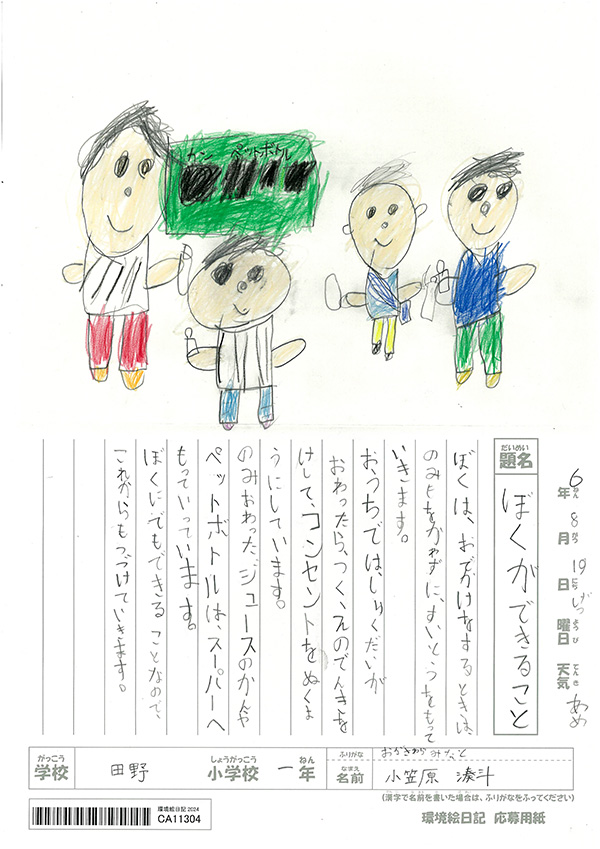 カン ペットボトル
6年 8月 19日 げつ曜日 天気 あめ
ねん がつ にち ようび てんき
だいめい
題名
ぼくができること
ぼくは、おでかけをするときは、
のみものをかわずに、すいとうをもって
いきます。
おうちでは、しゅくだいが
おわったら、つくえのでんきを
けして、コンセントをぬくよ
うにしています。
のみおわったジュースのかんや
ペットボトルは、スーパーへ
もっていっています。
ぼくにでもできることなので、
これからもつづけていきます。
がっこう
学校
田野
しょうがっこう
小学校
一
ねん
年
ふりがな
おがさわら みなと
なまえ
名前
小笠原 湊斗
(漢字で名前を書いた場合は、ふりがなをふってください)
環境絵日記 2024
CA11304
環境絵日記 応募用紙